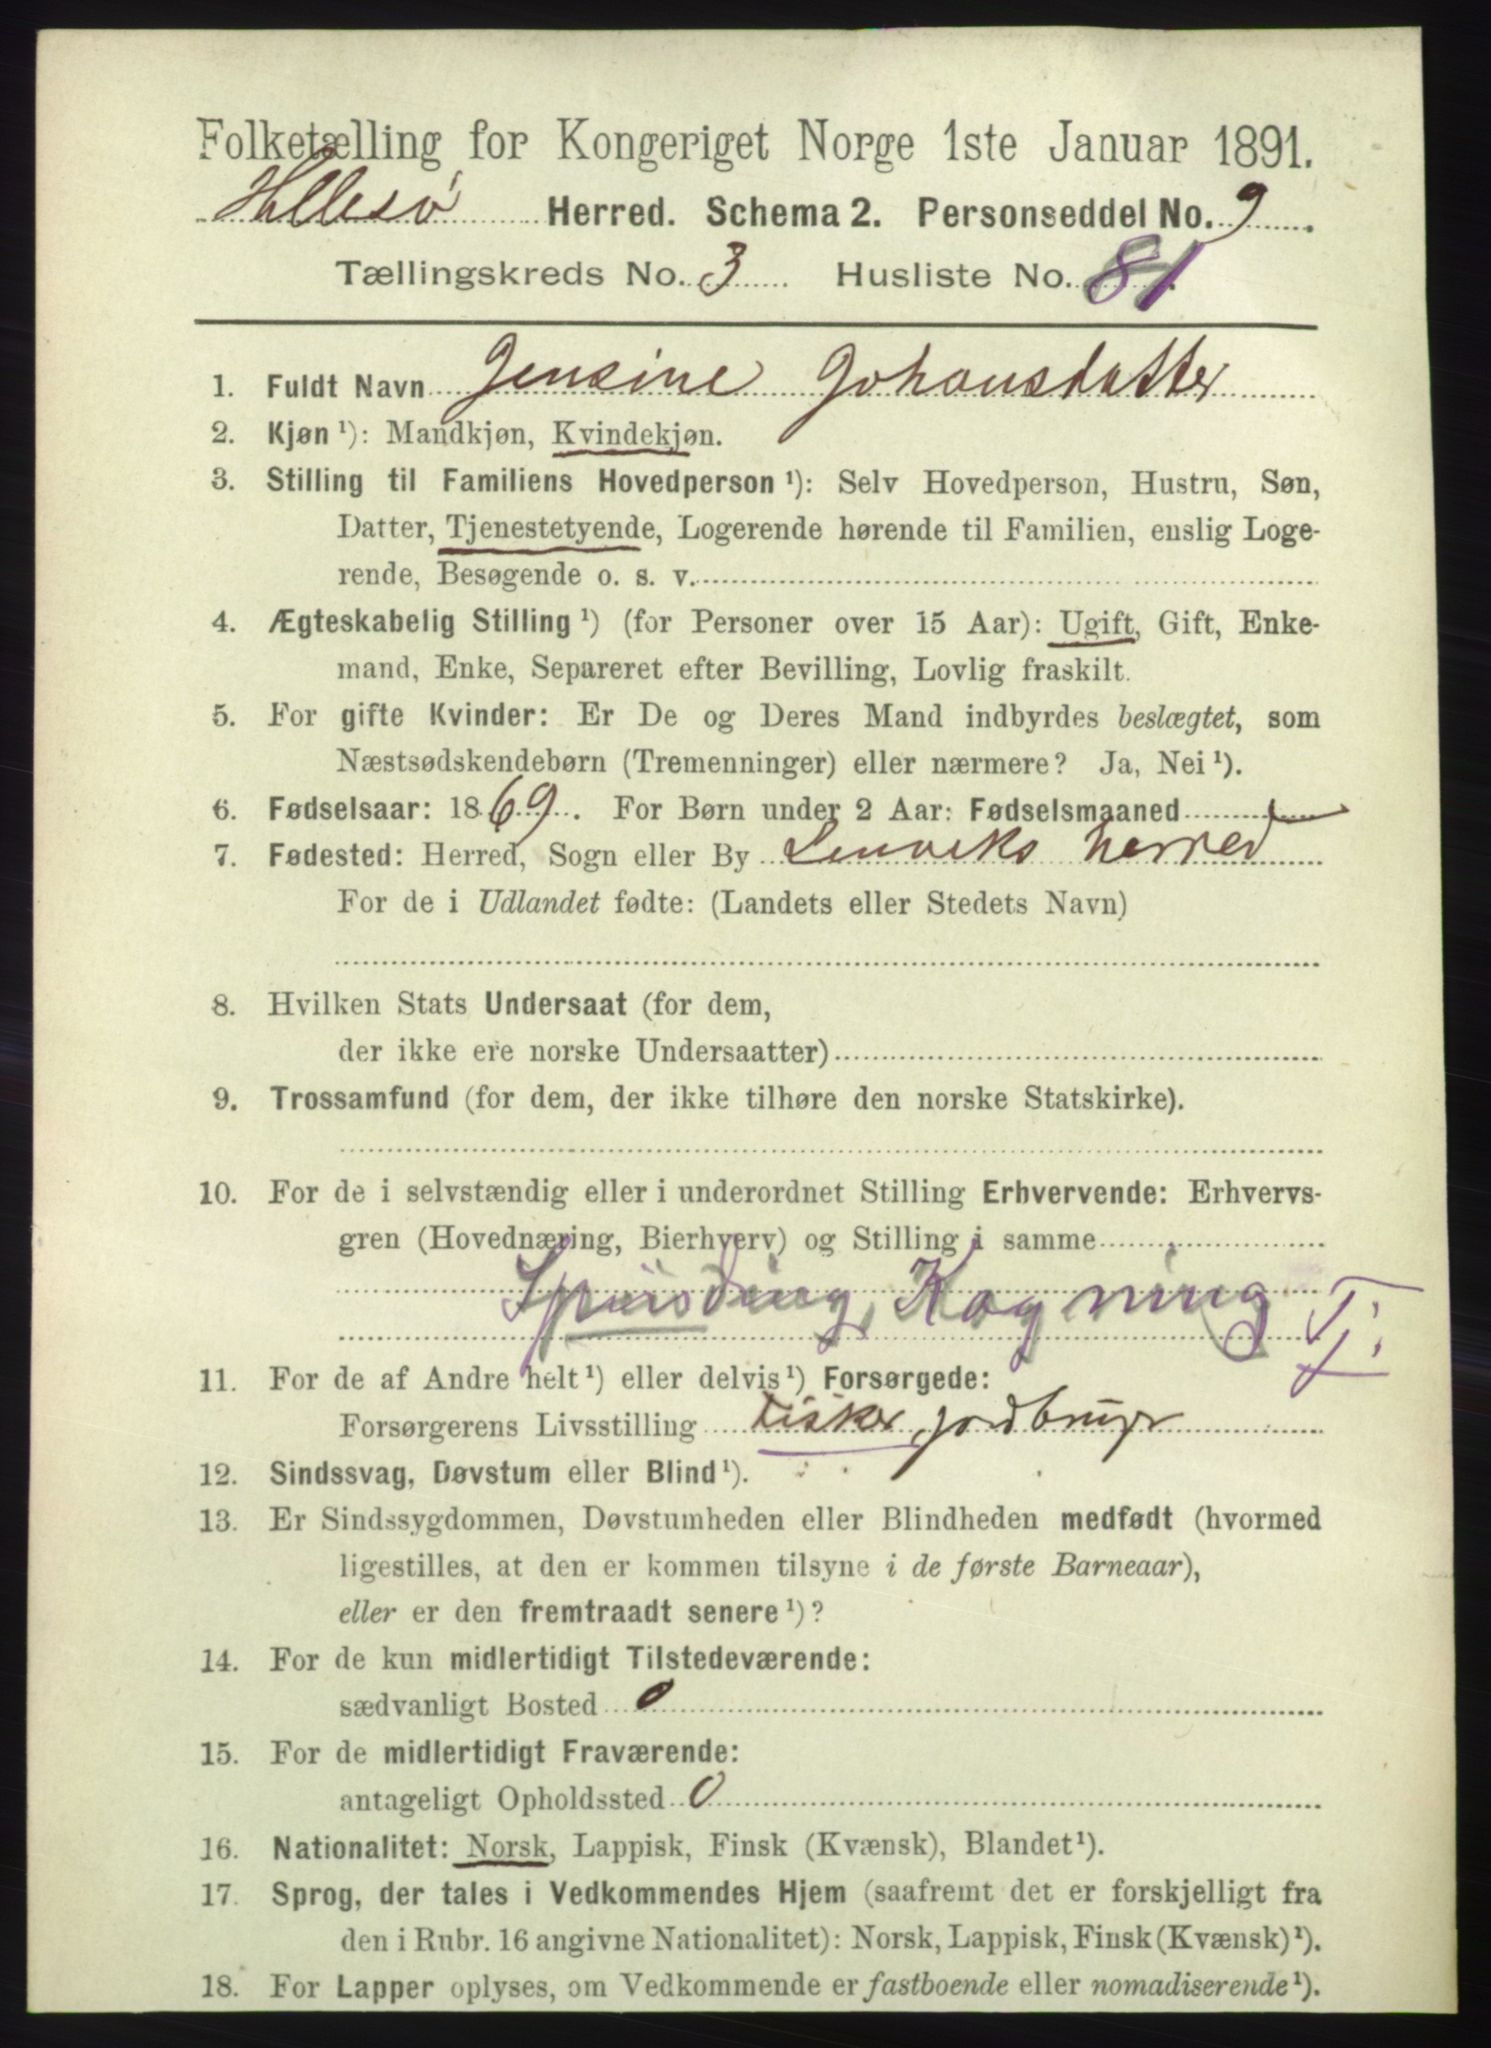 Folketælling for Kongeriget Norge 1ste Januar 1891.
Hillesø Herred. Schema 2. Personseddel No. 9.
Tællingskreds No. 3 Husliste No. 81.
1. Fuldt Navn Jensine Johansdatter
2. Kjøn ¹): Mandkjøn, Kvindekjøn.
3. Stilling til Familiens Hovedperson ¹): Selv Hovedperson, Hustru, Søn,
Datter, Tjenestetyende, Logerende hørende til Familien, enslig Loge-
rende, Besøgende o. s. v.
4. Ægteskabelig Stilling ¹) (for Personer over 15 Aar): Ugift, Gift, Enke-
mand, Enke, Separeret efter Bevilling, Lovlig fraskilt.
5. For gifte Kvinder: Er De og Deres Mand indbyrdes beslægtet, som
Næstsødskendebørn (Tremenninger) eller nærmere? Ja, Nei ¹).
6. Fødselsaar: 1869. For Børn under 2 Aar: Fødselsmaaned
7. Fødested: Herred, Sogn eller By Lenviks herred
For de i Udlandet fødte: (Landets eller Stedets Navn)
8. Hvilken Stats Undersaat (for dem,
der ikke ere norske Undersaatter)
9. Trossamfund (for dem, der ikke tilhøre den norske Statskirke).
10. For de i selvstændig eller i underordnet Stilling Erhvervende: Erhvervs-
gren (Hovednæring, Bierhverv) og Stilling i samme
Kogning Tj.
11. For de af Andre helt ¹) eller delvis ¹) Forsørgede:
Forsørgerens Livsstilling Fisker, jordbruger
12. Sindssvag, Døvstum eller Blind ¹).
13. Er Sindssygdommen, Døvstumheden eller Blindheden medfødt (hvormed
ligestilles, at den er kommen tilsyne i de første Barneaar),
eller er den fremtraadt senere ¹)?
14. For de kun midlertidigt Tilstedeværende:
sædvanligt Bosted 0
15. For de midlertidigt Fraværende:
antageligt Opholdssted 0
16. Nationalitet: Norsk, Lappisk, Finsk (Kvænsk), Blandet ¹).
17. Sprog, der tales i Vedkommendes Hjem (saafremt det er forskjelligt fra
den i Rubr. 16 angivne Nationalitet): Norsk, Lappisk, Finsk (Kvænsk) ¹).
18. For Lapper oplyses, om Vedkommende er fastboende eller nomadiserende ¹).